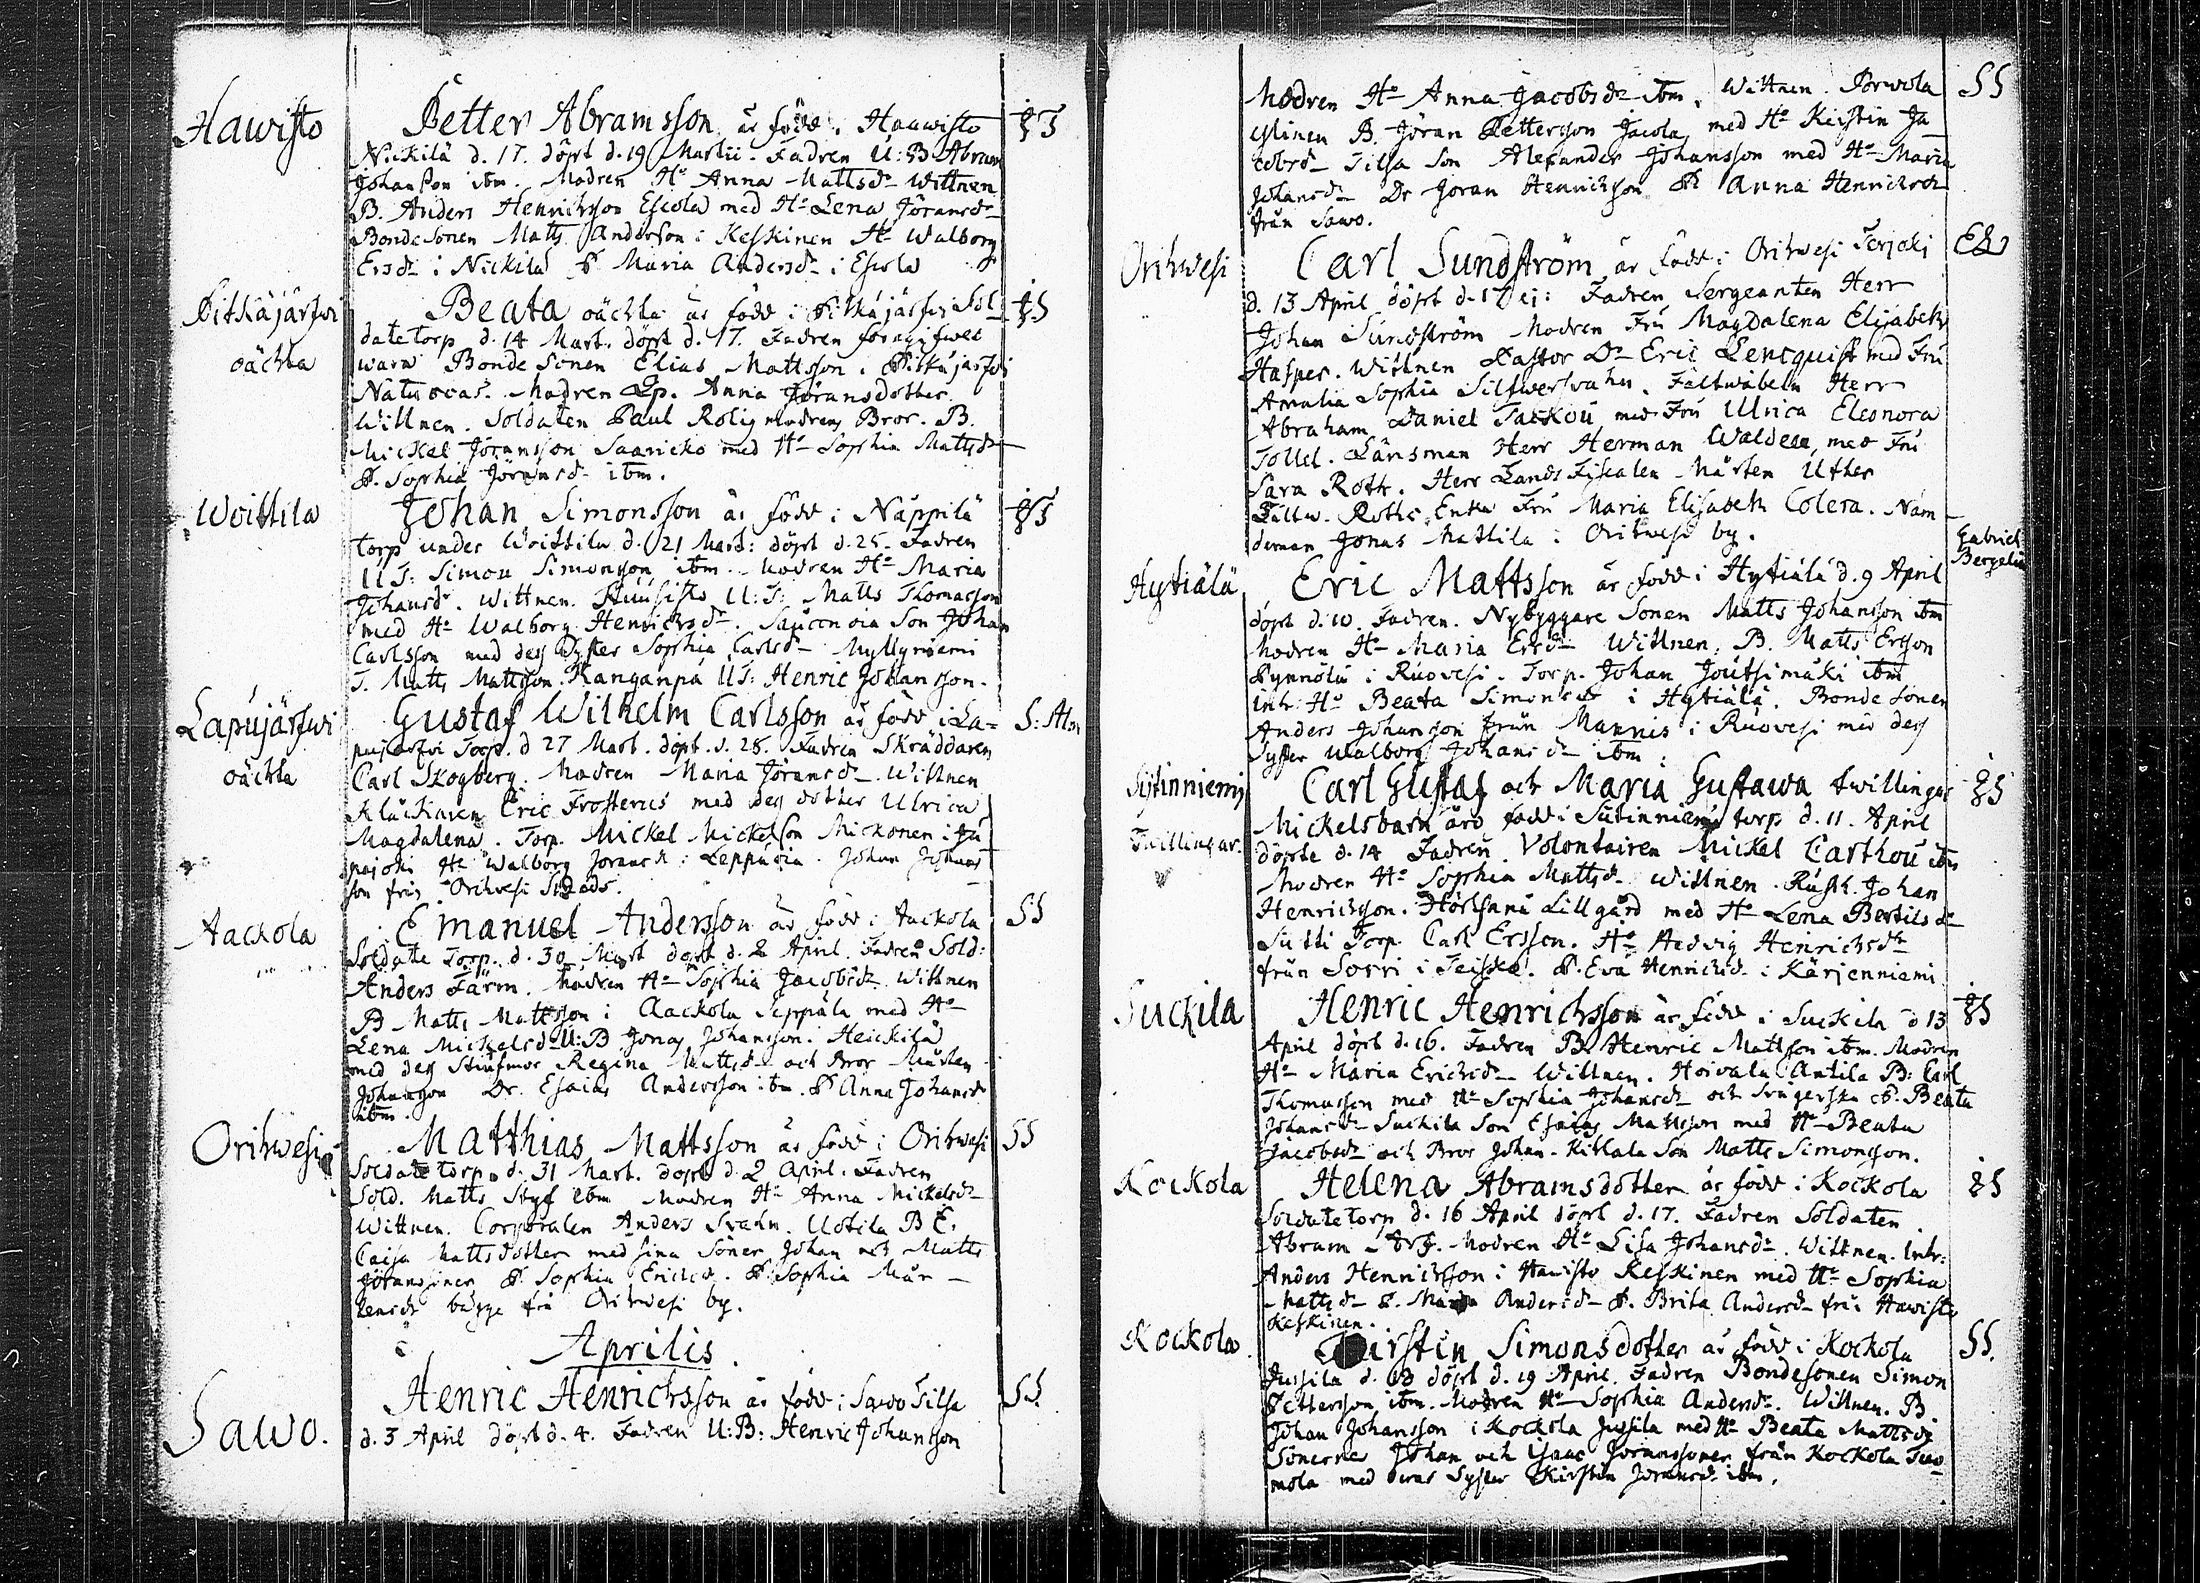 Hawisto
Petter Abramsson är född i Haawisto
Nickilä d. 17. döpt d. 19 Martii. Fadren U: B. Abram
Johansson ibm. Modren Ho Anna Mattsdr Wittnen
B. Anders Henrichsson Escola med Ho Lena Jöransdr
Bonde Sonen Matts Andersson i Keskinen Ho Walborg
Ersdr i Nickilä P. Maria Andersdr i Escola
Pitkäjärfwi
oächta
Beata oächta är född i Pitkäjärfwi Sol-
date torp d. 14 Mart. döpt d. 17. Fadren föregifwes
wara Bonde Sonen Elias Mattsson i Pitkäjärfwi
Modren Lp. Anna Jöransdotter.
Wittnen. Soldaten Paul Rolig modrens Bror. B.
Mickel Jöransson Saaricko med Ho Sophia Mattsdr
P. Sophia Jöransdr ibm.
Woittila
Johan Simonsson är född i Näppilä
torp under Woittila d. 21 Mart: döpt d. 25. Fadren
U T: Simon Simonsson ibm. Modren Ho Maria
Johansdr. Wittnen. Huusisto U: T: Matts Thomasson
med Ho Walborg Henrichsdr. Son Johan
Carlsson med des Syster Sophia Carlsdr Myllyniemi
T. Matts Mattsson. Kanganpä UT: Henric Johansson.
Lapujärfwi
oächta
Gustaf Wilhelm Carlsson är född i La=
pujärfwi Torp. d 27 Mart. döpt. d. 28. Fadren Skräddaren
Carl Skogberg. Modren Maria Jöransdr. Wittnen
Klåckaren Eric Frosterus med des dotter Ulrica
Magdalena. Torp. Mickel Mickelson Mickonen i Ju-
pajoki Ho Walborg Joransdr i Leppäoia. Johan Johans
son från Orihwesi
S: Alm
Aackola
Emanuel Andersson är född i Aackola
Soldate Torp. d. 30 Mart döpt d. 2 April. Fadren Sold:
Anders Färm. Modren Ho Sophia Jacobsdr Wittnen
B Matts Mattsson i Aackola Seppälä med Ho
Lena Mickelsdr U: B Jonas Johansson. Heickilä
med des Stiufmor Regina Mattsdr och Bror Mårten
Johansson Dr. Esaias Andersson ibm. P. Anna Johansdr
ibm.
SS
Orihwesi
Matthias Mattsson är född i Orihwesi
Soldate torp. d. 31 Mart. döpt d. 2 April. Fadren
Sold. Matts Styf ibm Modren Ho Anna Mickelsdr
Wittnen. Corporalen Anders Svahn. Uotila B E.
Caisa Mattsdotter med sina Söner Johan och Matts
Jöranssöner P. Sophia Ericsdr. P. Sophia Mår-
tensdr bägge frå Orihwesi by.
SS
Aprilis.
Sawo.
Henric Henrichsson är född i Sawo Tilsa
d. 3 April döpt d. 4. Fadren U: B: Henric Johansson
SS
Modren Ho Anna Jacobsdr ibm. Wittnen. Porwola
B. Jöran Pettersson Jacola med Ho Keistin Ja-
cobsdr Tilsa Son Alexander Johansson med Ho Maria
Johansdr Dr Joran Henrichson P. Anna Henrichsdr
från Sawo.
SS
Orihwesi
Carl Sundström är född i Orihwesi
d. 13 April döpt d. 17 ej: Fadren Sergeanten Herr
Johan Sundström Modren Fru Magdalena Elisabeth
Hasper. Wittnen Pastor Dn Eric Lencquist med Fru
Amalia Sophia Silfwersvahn. Fältwäbeln Herr
Abraham Daniel Tackou med Fru Ulrica Eleonora
Tollet. Länsman Herr Herman Waldeen, med Fru
Sara Roth. Herr Lands Fiscalen Mårten Uther
Fältw. Roths Enka Fru Maria Elisabeth Colera. Näm-
deman Jonas Mattila i Orihwesi by.
Hytiälä
Gabriel
Bergelin
Eric Mattsson är född i Hytiälä d. 9 April
döpt d. 10. Fadren. Nybyggare Sonen Matts Johansson ibm
Modren Ho Maria Ersdr Wittnen. B. Matts Ersson
Pynnölä i Ruovesi. Torp. Johan Joutsimäki ibm
Inh: Ho Beata Simonsdr i Hytiälä. Bonde Sonen
Anders Johansson från Mannis i Ruovesi med des
Syster Walborg Johansdr ibm.
Sytinniemi
Twillingar.
Carl Gustaf och Maria Gustawa twillingar
Mickelsbarn äro född i Sutinniemi torp d. 11. April
döpte d. 14 Fadren. Volontairen Mickel Carthou ibm
Modren Ho Sophia Mattsdr Wittnen. Rusth. Johan
Henrichsson. Hörtsänä Lillgård med Ho Lena Bertilsdr
Sutti Torp. Carl Ersson. Ho Hedvig Henrichsdr
från Sorri i Teisko. P. Eva Henrichsdr i Kärjenniemi
Suckila
Henric Henrichsson är född i Suckila d 13
April döpt d. 16. Fadren B. Henric Mattson ibm. Modren
Ho Maria Erichsdr Wittnen. Hoivala Antila B: Carl
Thomasson med Ho Sophia Johansdr och Svägerska P. Beata
Johansdr Suckila Son Esaias Mattsson med Ho Beata
Jacobsdr och Bror Johan. Kithala Son Matts Simonsson.
Kockola
Helena Abramsdotter är född i Kockola
Soldate torp d. 16 April döpt d. 17. Fadren Soldaten
Abram Modren Ho Lisa Johansdr. Wittnen. Inh:
Anders Henrichson i Hawisto Keskinen med Ho Sophia
Mattsdr P. Maria Andersdr P. Brita Andersdr frå Hawisto
Keskinen.
Kockola.
Kirstin Simonsdotter är född i Kockola
Jussila d. 18 döpt d. 19 April. Fadren Bondesonen Simon
Pettersson ibm. Modren Ho Sophia Andersdr. Wittnen. B.
Johan Johansson i Kockola Jussila med Ho Beata Mattsdr
Sönerne Johan och Isaac Joranssoner från Kockola Tuo-
mola med deras Syster Kirstin Joransdr ibm.
SS.